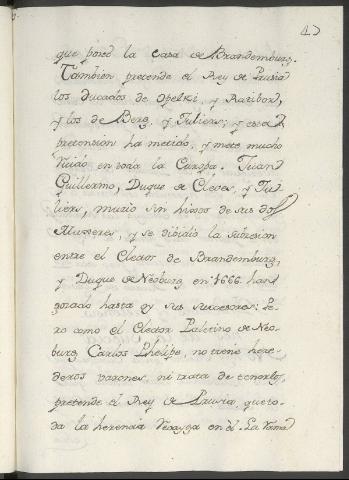 47
que poseé la Casa de Brandemburg.
Tambien pretende el Rey de Prusia
los Ducados de Opelki, y Raribor,
y los de Berg, y Juliers; y esta
pretension ha metido, y mete mucho
ruido en toda la Europa. Juan
Guillermo, Duque de Cleves, y Ju-
liers, murio sin hijos de sus dos
Mugeres, y se dibidio la subcesion
entre el Elector de Brandemburg,
y Duque de Neoburg en 1666. han
gozado hasta oy sus sucesores: Pe-
ro como el Elector Palatino de Neo-
burg Carlos Phelipe, no tiene here-
deros varones, ni trata de tenerlos,
pretende el Rey de Prusia que to-
da la herencia recayga en èl. La Toma